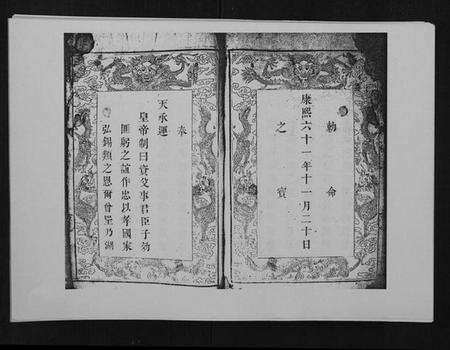 勅命
康熙六十一年十一月二十日
之寶
奉
天承運
皇帝制曰資父事君臣子効
匪躬之誼作忠以孝國家
弘錫類之恩爾曾乃湖